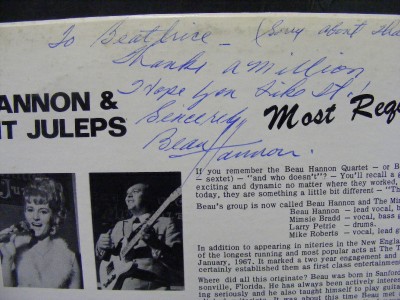 To Beatrice - (Sorry about that
Thanks a Million
Hope you Like It!
Sincerely
Beau Hannon.
ANNON &
T JULEPS
Most Req
If you remember the Beau Hannon Quartet — or B
— sextet) — "and who doesn't"? — You'll recall a g
exciting and dynamic no matter where they worked,
today, they are something a little bit different — "Th
Beau's group is now called Beau Hannon and The Mi
Beau Hannon — lead vocal, b
Minnie Bradd — vocal, bass g
Larry Petrie — drums.
Mike Roberts — vocal, lead g
In addition to appearing in niteries in the New Engla
of the longest running and most popular acts at The T
January, 1967. It marked a two year engagement and
certainly established them as first class entertainment
Where did all this originate? Beau was born in Sanford
terville, Florida. He has always been actively interes
ing seriously and he also taught himself to play guitar